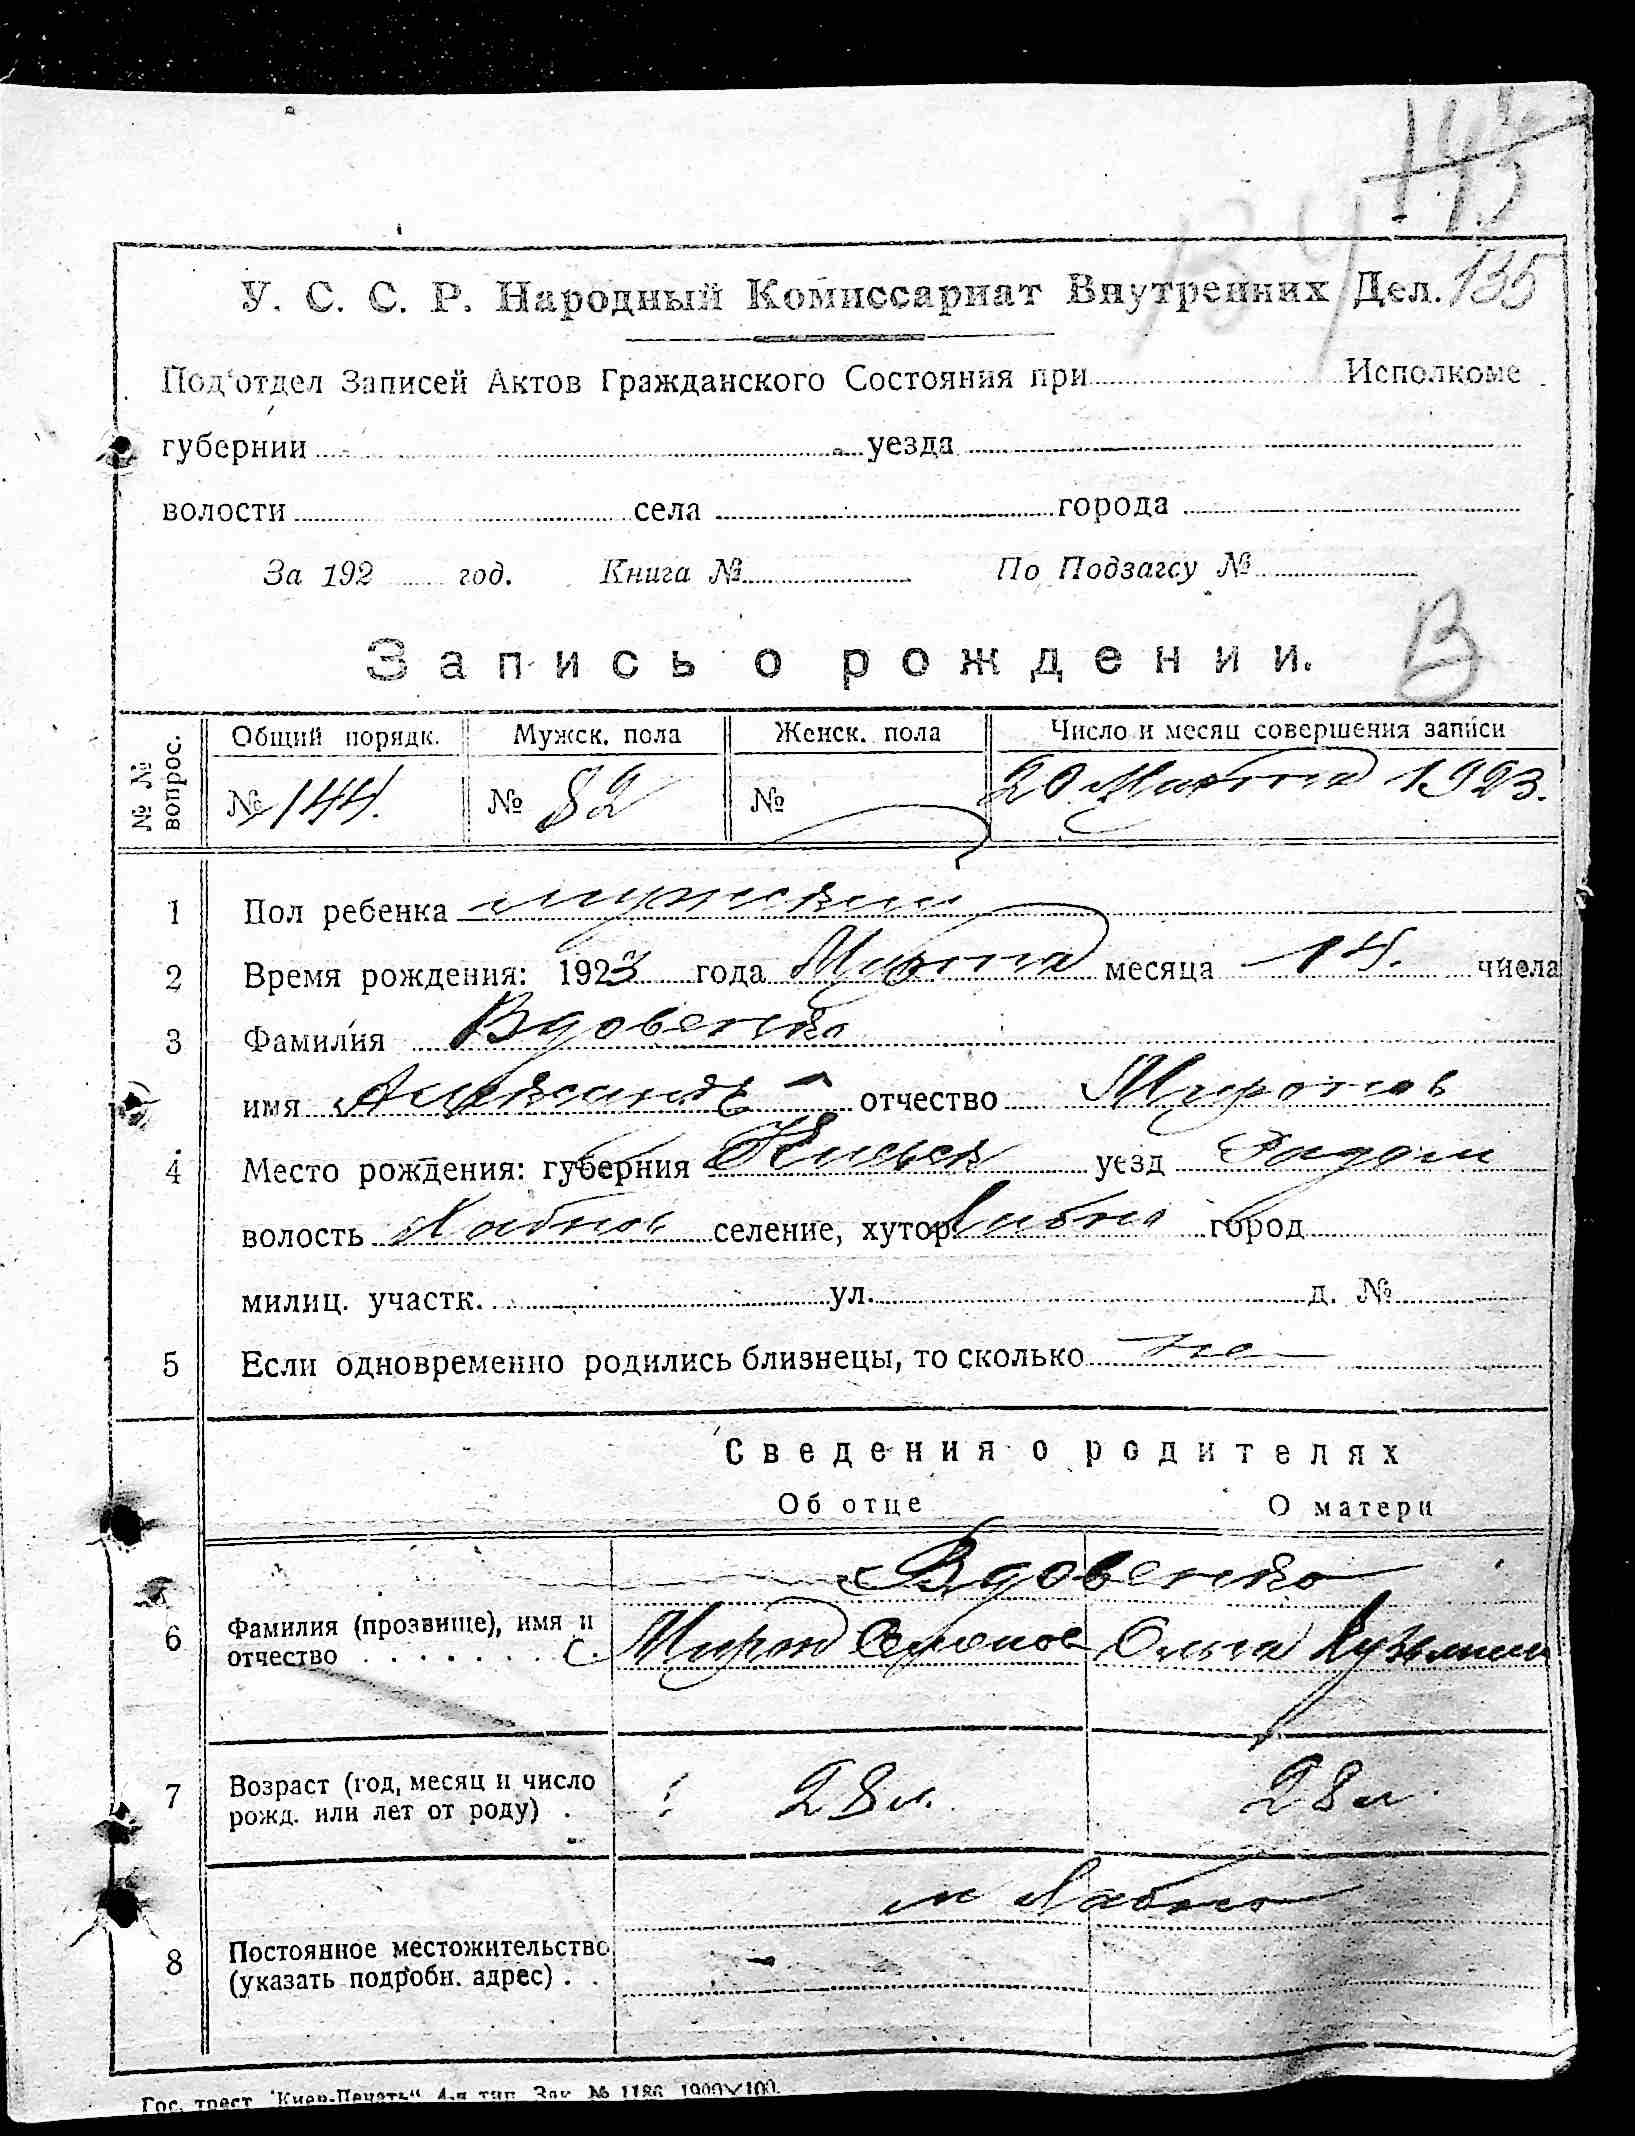 143
134
135
У. С. С. Р. Народный Комиссариат Внутренних Дел.
Под'отдел Записей Актов Гражданского Состояния при Исполкоме
губернии уезда
волости села города
За 192 год. Книга № По Подзагсу №
В
Запись о рождении.
№ № вопрос. Общий порядк. Мужск. пола Женск. пола Число и месяц совершения записи
№ 144. № 82 № 20 Марта 1923.
1 Пол ребенка мужский
2 Время рождения: 1923 года Марта месяца 14. числа
3 Фамилия Вдовенко
имя Александр отчество Миронов
4 Место рождения: губерния Киевск уезд Радом
волость Хабнов селение, хутор Хабно город
милиц. участк. ул. д. №
5 Если одновременно родились близнецы, то сколько не
Сведения о родителях
Об отце О матери
Вдовенко
6 Фамилия (прозвище), имя и
отчество С. Мирон Семенов Ольга Кузьмин
7 Возраст (год, месяц и число
рожд. или лет от роду) . 28 л. 28 л.
м Хабно
8 Постоянное местожительство
(указать подробн. адрес) . .
Гос. трест "Киев-Печать" 4-я тип. Зак. № 1186 1000×100.